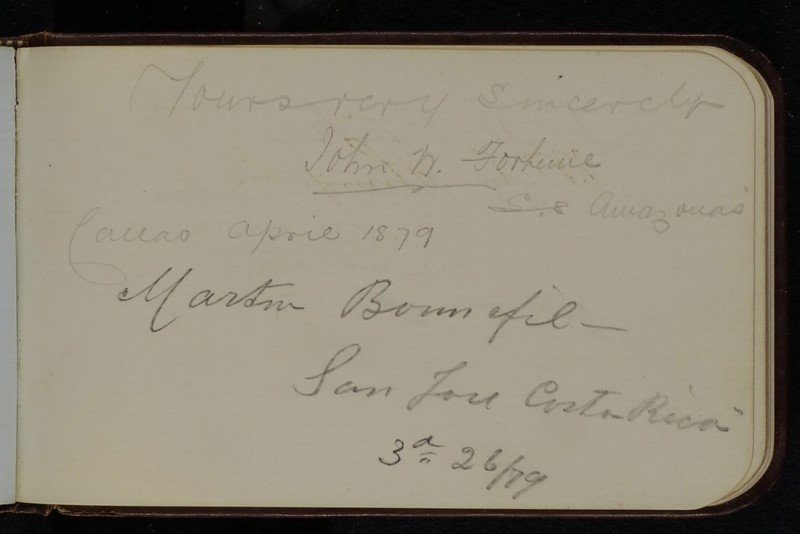 Yours very Sincerely
John W. Fortune
S.S Amazonas
Callao April 1879
Martin Bonnefil
San Jose Costa Rica
3a 26/79